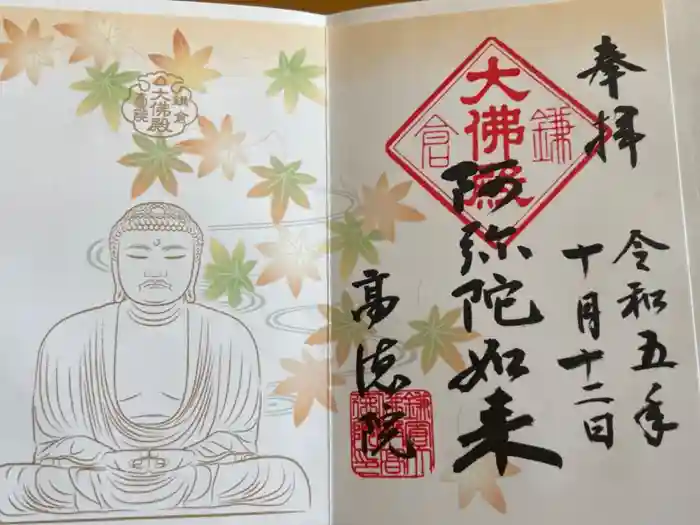 奉拝
令和五年
十月十二日
大佛殿
鎌倉
阿弥陀如来
高徳院
鎌倉
大佛殿
高徳院